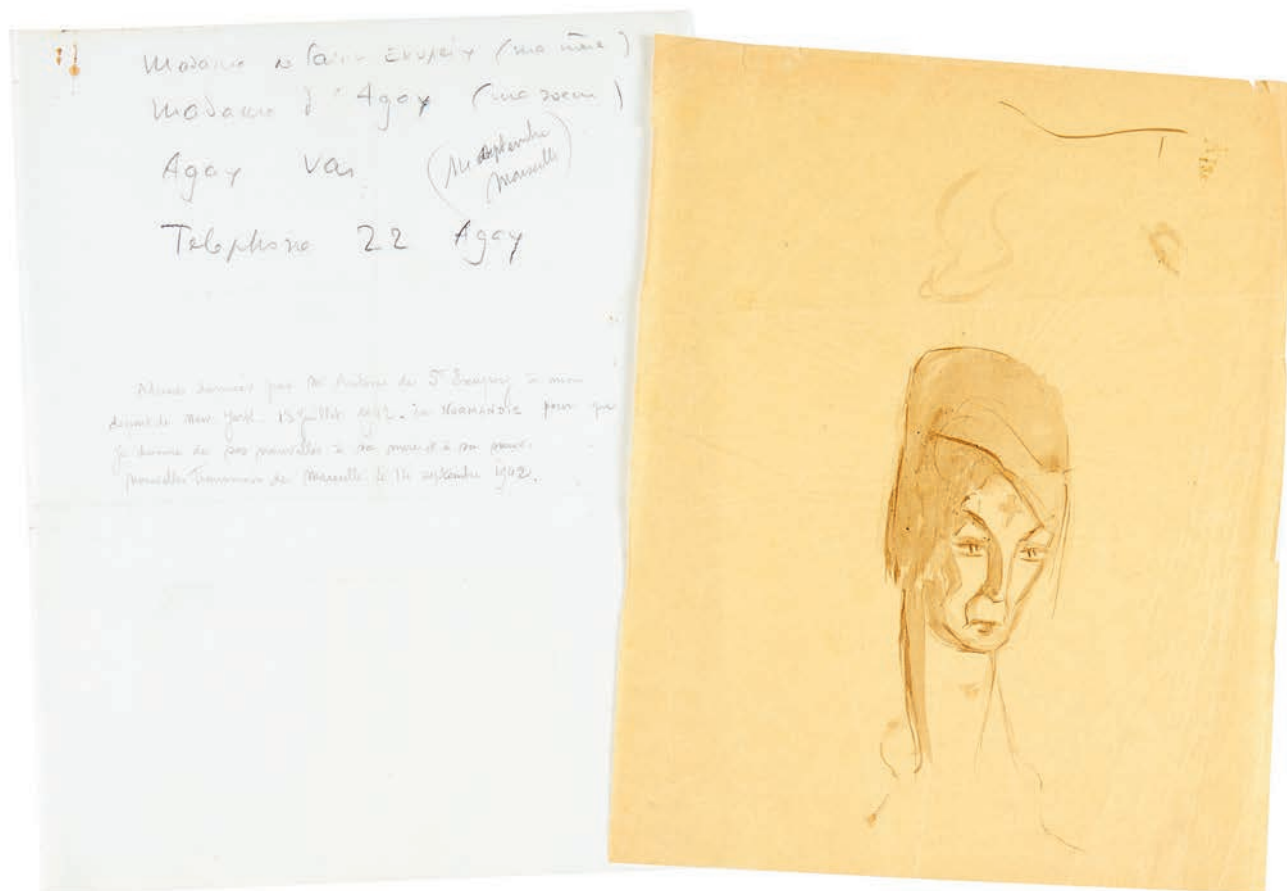 Madame de Saint Exupéry (ma mère)
Madame d'Agay (ma soeur)
Agay Var
(14 septembre
Marseille)
Telephone 22 Agay
Adresse donnée par Mr Antoine de St Exupéry à mon
départ de New York. 13 juillet 1942. en NORMANDIE pour que
je donne de ses nouvelles à sa mère et à sa soeur.
nouvelles transmises de Marseille le 14 septembre 1942.